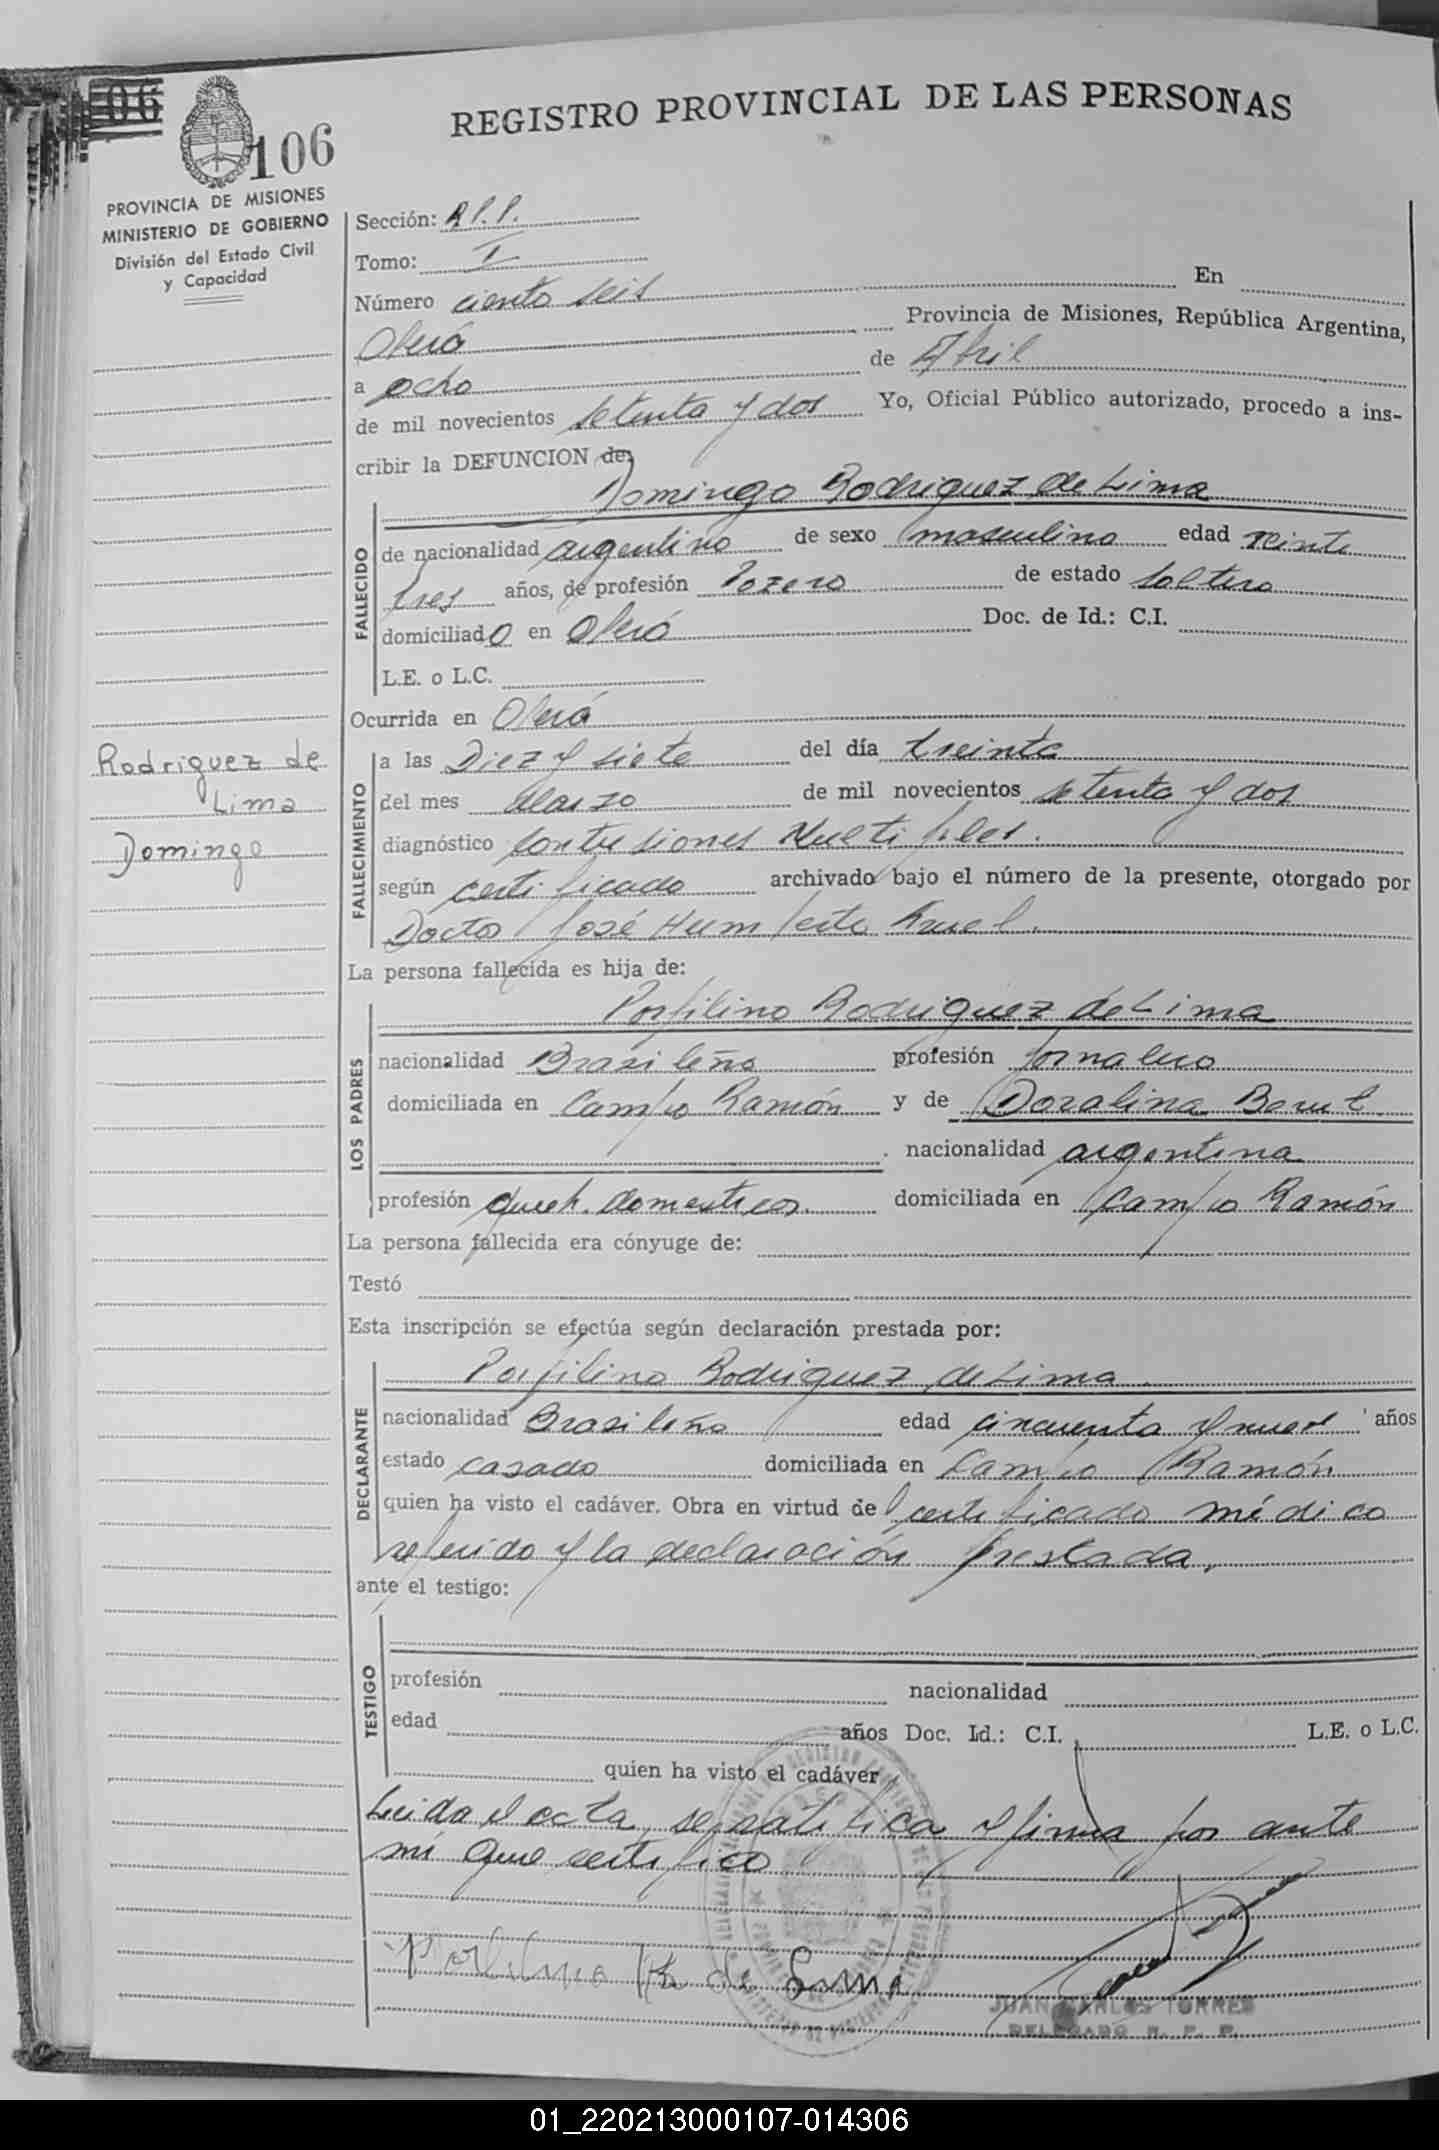 REGISTRO PROVINCIAL DE LAS PERSONAS
106
PROVINCIA DE MISIONES
MINISTERIO DE GOBIERNO
División del Estado Civil
y Capacidad
Sección: R.P.P.
Tomo: I
Número ciento seis En
Oberá Provincia de Misiones, República Argentina,
a ocho de Abril
de mil novecientos setenta y dos Yo, Oficial Público autorizado, procedo a ins-
cribir la DEFUNCION de
Domingo Rodriguez de Lima
FALLECIDO
de nacionalidad argentino de sexo masculino edad veinte
tres años, de profesión Pozero de estado soltero
domiciliado en Oberá Doc. de Id.: C.I.
L.E. o L.C.
Ocurrida en Oberá
Rodriguez de
Lima
Domingo
FALLECIMIENTO
a las Diez y siete del día treinta
del mes Marzo de mil novecientos setenta y dos
diagnóstico Contusiones Multiples.
según certificado archivado bajo el número de la presente, otorgado por
Doctor José Humberto
La persona fallecida es hija de:
LOS PADRES
Porfilino Rodriguez de Lima
nacionalidad Brasileño profesión Jornalero
domiciliada en Campo Ramón y de Doralina
nacionalidad argentina
profesión queh. domesticos. domiciliada en Campo Ramón
La persona fallecida era cónyuge de:
Testó
Esta inscripción se efectúa según declaración prestada por:
DECLARANTE
Porfilino Rodriguez de Lima
nacionalidad Brasileño edad cincuenta y nueve años
estado casado domiciliada en Campo Ramón
quien ha visto el cadáver. Obra en virtud del certificado médico
referido y la declaración prestada,
ante el testigo:
TESTIGO
profesión nacionalidad
edad años Doc. Id.: C.I. L.E. o L.C.
quien ha visto el cadáver
Leida el acta, se ratifica y firma por ante
mí que certifico
Porfilino R. de Lima
JUAN CARLOS TORRES
DELEGADO R. P. P.
01_220213000107-014306